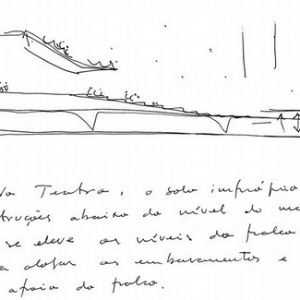 Teatro, o solo impróprio
truções abaixo do nível do ma
se eleve os níveis do palco
a dotar os embasamentos e
apoio do palco.